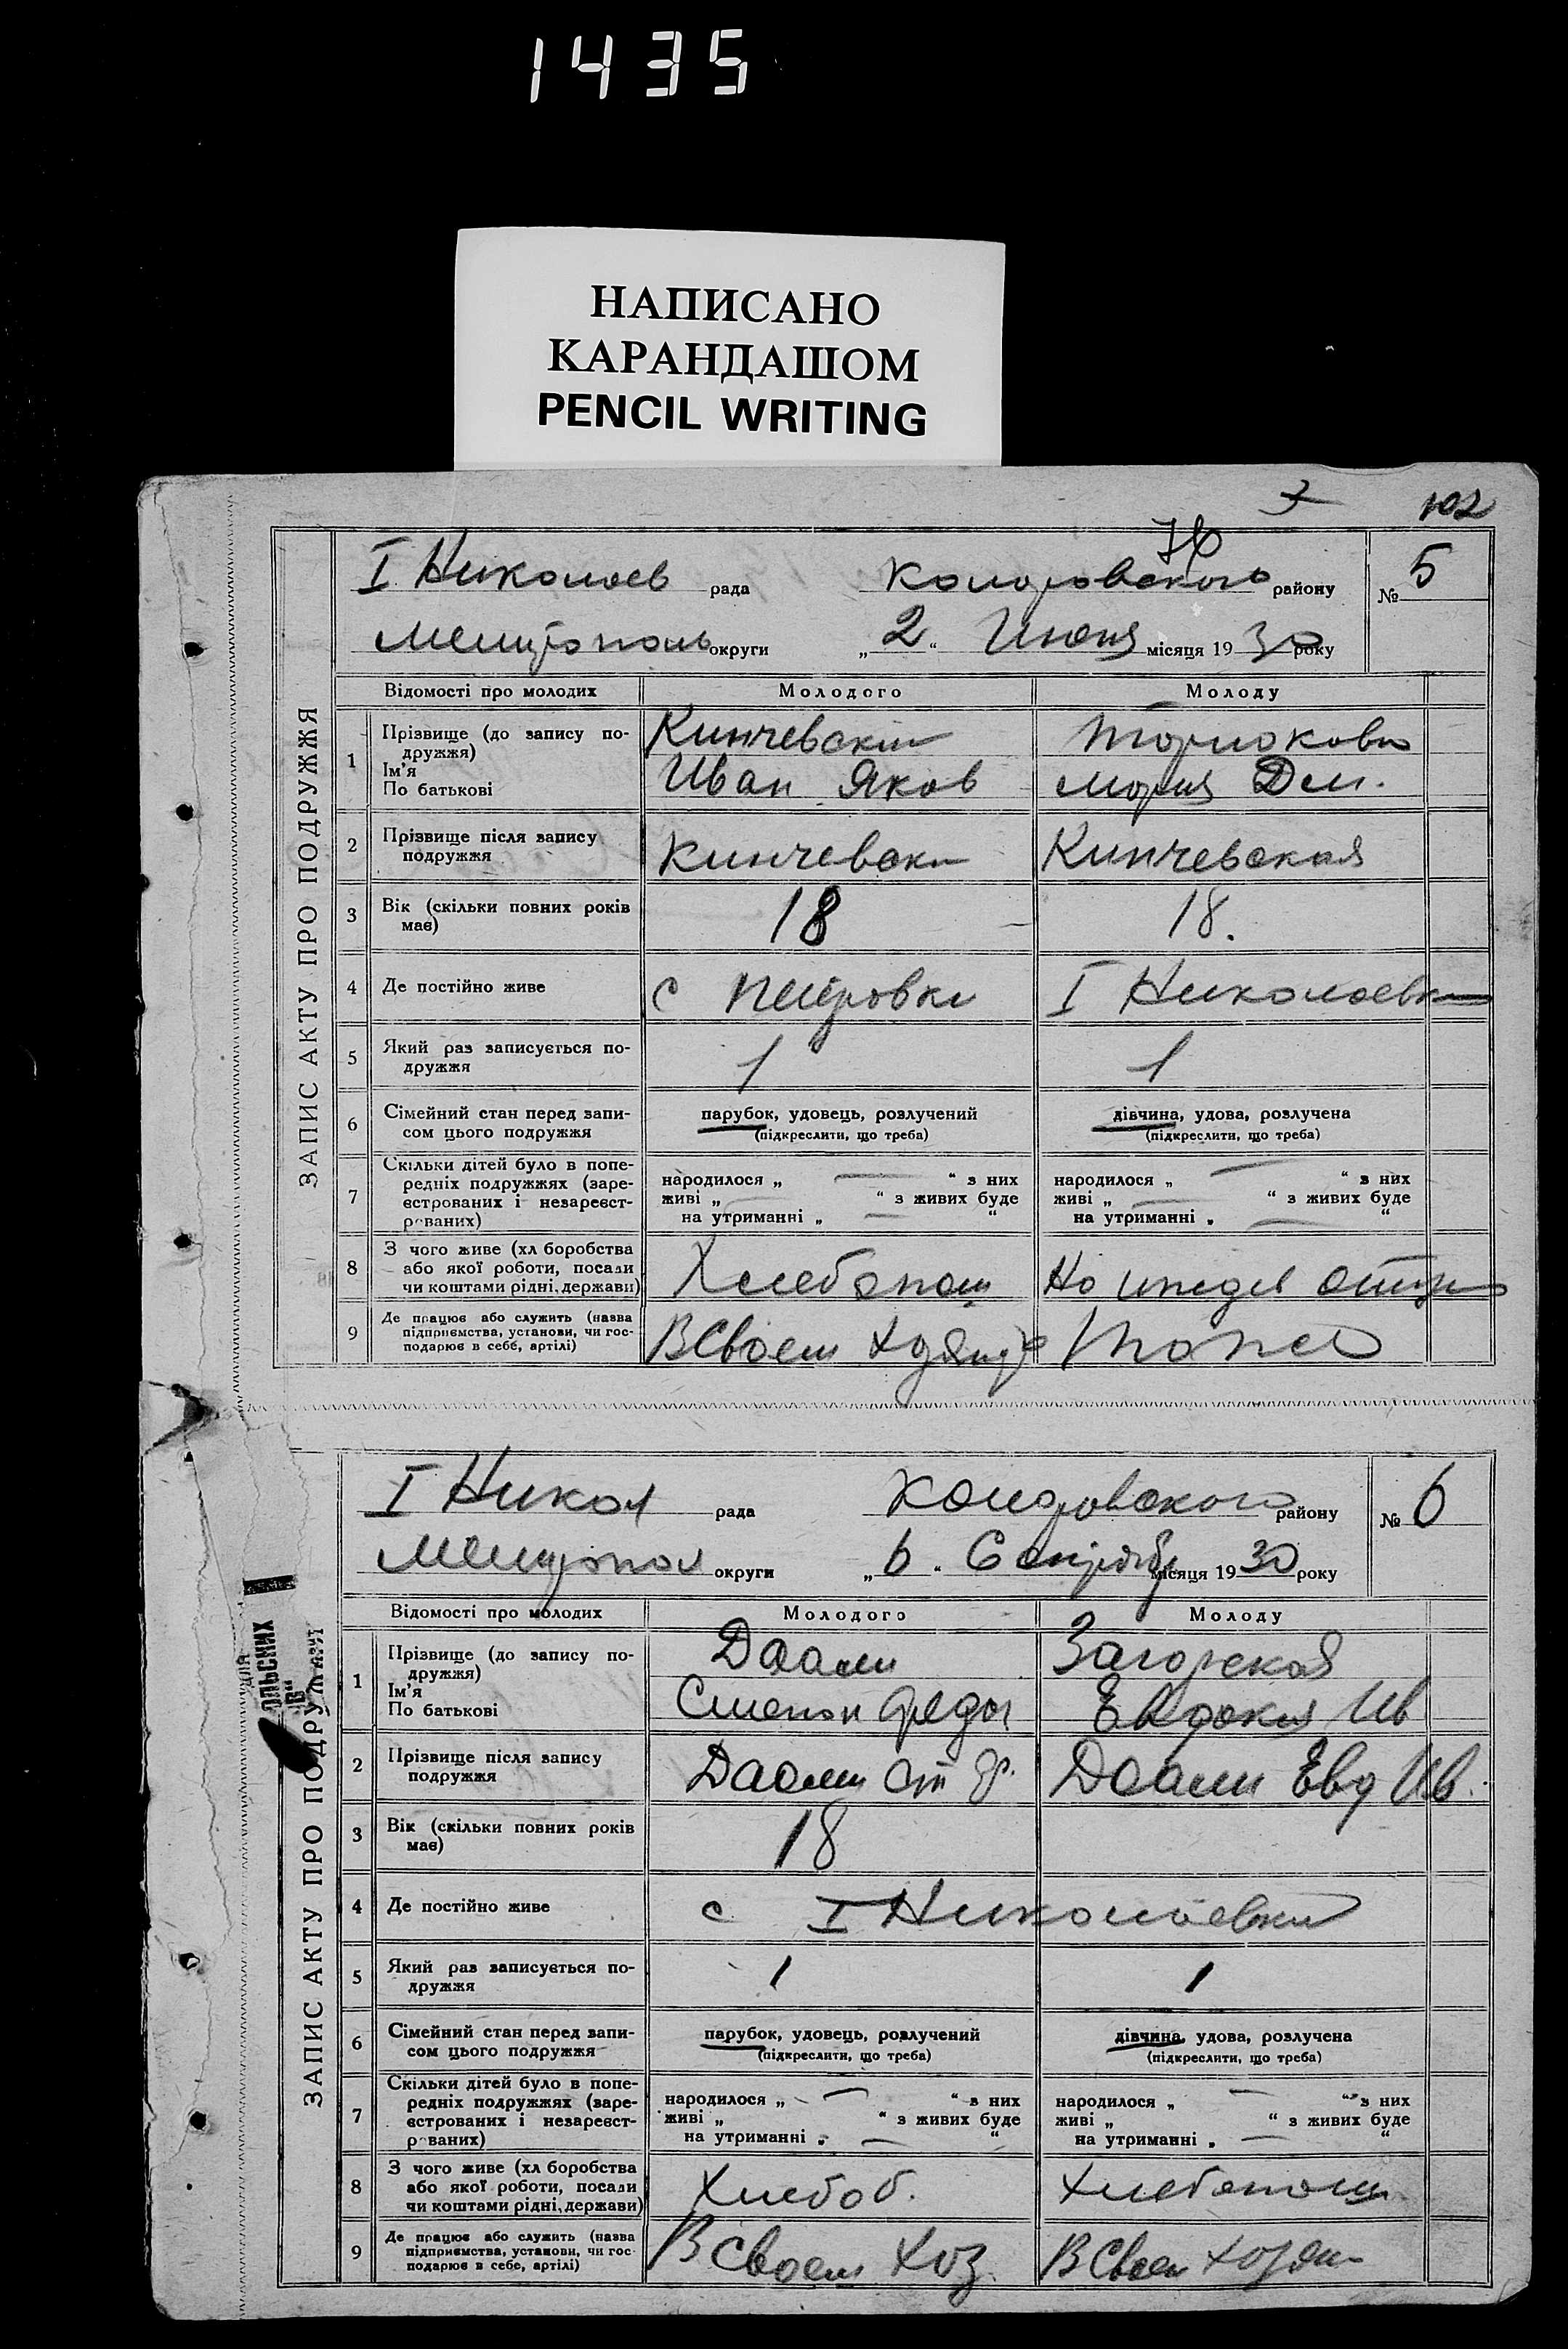 1435
НАПИСАНО
КАРАНДАШОМ
PENCIL WRITING
102
ЗАПИС АКТУ ПРО ПОДРУЖЖЯ
I Николаев рада района району № 5
Мелитополь округи „2“ Июня місяця 1930 року
Відомості про молодих Молодого Молоду
1 Прізвище (до запису по-
дружжя)
Ім'я
По батькові
Кинчевский
Иван Яков Мария Дм.
2 Прізвище після запису
подружжя
Кинчевски Кинчевская
3 Вік (скільки повних років
має)
18 18.
4 Де постійно живе с Петровки I Николаевки
5 Який раз записується по-
дружжя
1 1
6 Сімейний стан перед запи-
сом цього подружжя
парубок, удовець, розлучений дівчина, удова, розлучена
(підкреслити, що треба) (підкреслити, що треба)
7 Скільки дітей було в попе-
редніх подружжях (заре-
єстрованих і незареєст-
рованих)
народилося „ — “ з них народилося „ — “ з них
живі „ — “ з живих буде живі „ — “ з живих буде
на утриманні „ — “ на утриманні „ — “
8 З чого живе (хл боробства
або якої роботи, посади
чи коштами рідні, держави)
Хлебопаш На иждев отца
9 Де працює або служить (назва
підприємства, установи, чи гос-
подарює в себе, артілі)
В Своем
ЗАПИС АКТУ ПРО ПОДРУЖЖЯ
I Никол рада району № 6
Мелитопол округи „6“ Сентября місяця 1930 року
Відомості про молодих Молодого Молоду
1 Прізвище (до запису по-
дружжя)
Ім'я
По батькові
Даами Загорская
Степан Федо Евдокия Ив
2 Прізвище після запису
подружжя
Даами Ст Ф. Даами Евд Ив.
3 Вік (скільки повних років
має)
18
4 Де постійно живе с I Николаевки
5 Який раз записується по-
дружжя
1 1
6 Сімейний стан перед запи-
сом цього подружжя
парубок, удовець, розлучений дівчина, удова, розлучена
(підкреслити, що треба) (підкреслити, що треба)
7 Скільки дітей було в попе-
редніх подружжях (заре-
єстрованих і незареєст-
рованих)
народилося „ — “ з них народилося „ — “ з них
живі „ “ з живих буде живі „ “ з живих буде
на утриманні „ — “ на утриманні „ — “
8 З чого живе (хл боробства
або якої роботи, посади
чи коштами рідні, держави)
Хлебоб. Хлебопаш
9 Де працює або служить (назва
підприємства, установи, чи гос-
подарює в себе, артілі)
В своем Хоз. В Своем хозяи